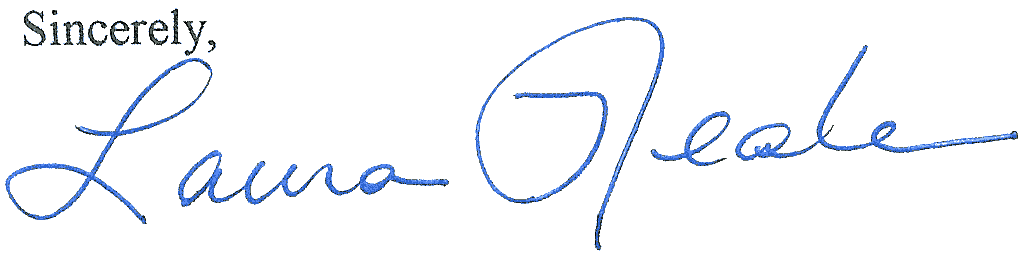 Sincerely,
Laura Neale